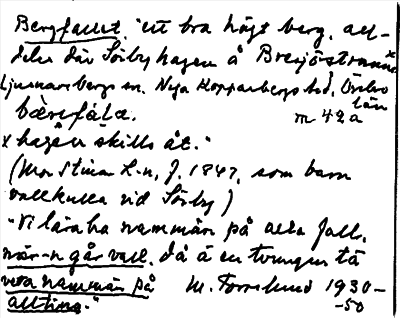 Bergfallet. "ett bra högt berg, all-
deles där Sörbyhagen å Bresjöstranna x
Ljusnarsbergs sn. Nya Kopparbergs bd, Örebro
län
bærefála. m 42a
x hagar skills åt."
(Mor Stina L-n, f. 1847, som barn
vallkulla vid Sörby)
"Vi lära ha nammän på alla fall,
når-n går vall, då ä en tvungen ta
veta nammän på M. Forslund 1930-
allting." -50